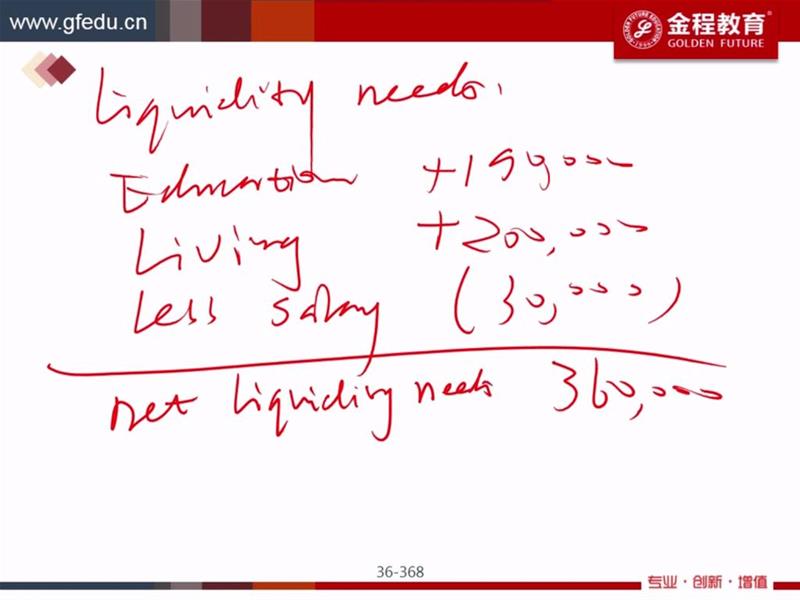 www.gfedu.cn
金程教育
GOLDEN FUTURE
Liquidity needs.
Education +199000
Living +200,000
Less salary (30,000)
net liquidity needs 360,000
36-368
专业·创新·增值